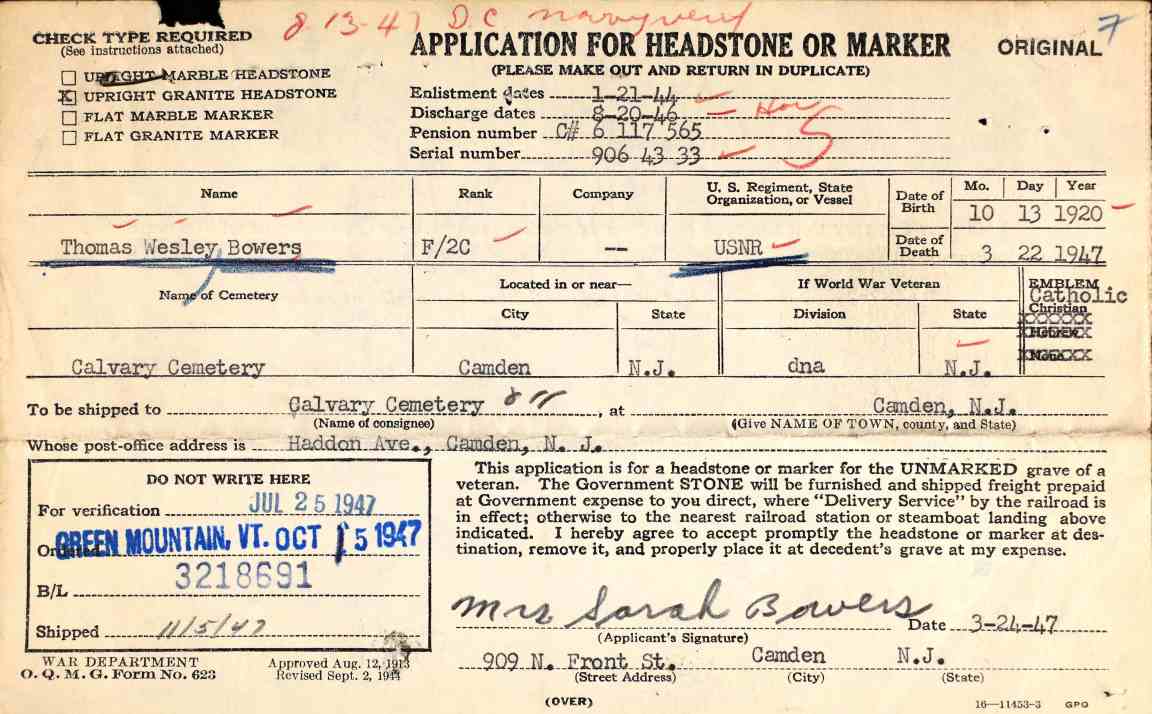 8-13-47 D.C Navy verf
7
CHECK TYPE REQUIRED
(See instructions attached)
UPRIGHT MARBLE HEADSTONE
X UPRIGHT GRANITE HEADSTONE
FLAT MARBLE MARKER
FLAT GRANITE MARKER
APPLICATION FOR HEADSTONE OR MARKER
(PLEASE MAKE OUT AND RETURN IN DUPLICATE)
ORIGINAL
Enlistment dates 1-21-44
Discharge dates 8-20-46 Hon
Pension number C# 6 117 565 5
Serial number 906 43 33
Name Rank Company U. S. Regiment, State Organization, or Vessel
Date of Birth Mo. Day Year
10 13 1920
Thomas Wesley Bowers F/2C -- USNR
Date of Death 3 22 1947
Name of Cemetery Located in or near— If World War Veteran EMBLEM
City State Division State
Catholic
Christian
Hebrew
None
Calvary Cemetery Camden N.J. dna N.J.
To be shipped to Calvary Cemetery , at Camden, N.J.
(Name of consignee) (Give NAME OF TOWN, county, and State)
Whose post-office address is Haddon Ave., Camden, N. J.
DO NOT WRITE HERE
For verification JUL 25 1947
Ordered GREEN MOUNTAIN, VT. OCT 15 1947
B/L 3218691
Shipped 11/5/47
This application is for a headstone or marker for the UNMARKED grave of a
veteran. The Government STONE will be furnished and shipped freight prepaid
at Government expense to you direct, where “Delivery Service” by the railroad is
in effect; otherwise to the nearest railroad station or steamboat landing above
indicated. I hereby agree to accept promptly the headstone or marker at des-
tination, remove it, and properly place it at decedent's grave at my expense.
Mrs Sarah Bowers Date 3-24-47
(Applicant's Signature)
909 N. Front St. Camden N.J.
(Street Address) (City) (State)
WAR DEPARTMENT
O. Q. M. G. Form No. 623
Approved Aug. 12, 1913
Revised Sept. 2, 1944
(OVER)
16—11453-3 GPO